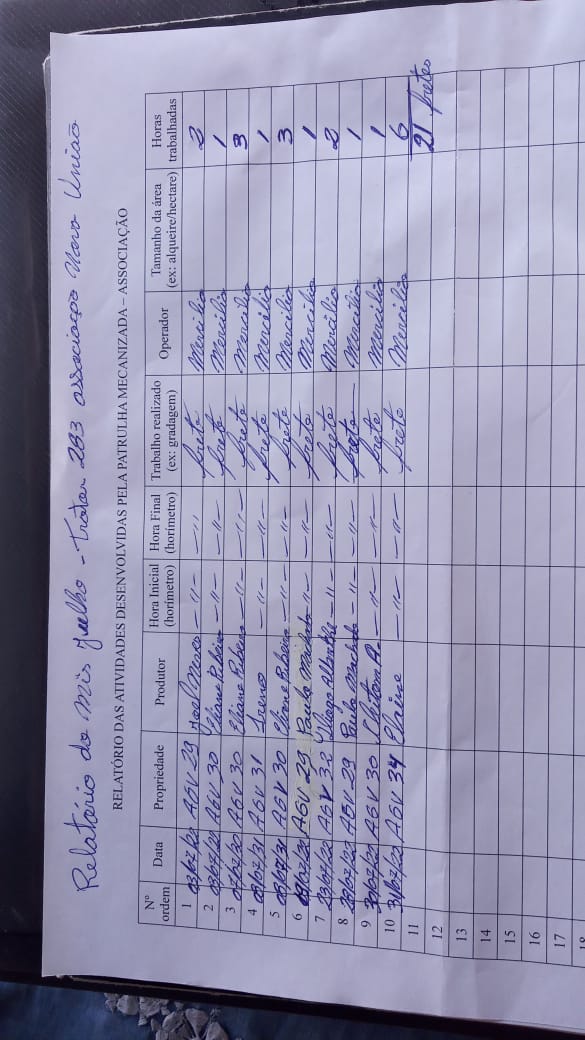 Relatório do mis Julho - Trator 283 associação Nova União
RELATÓRIO DAS ATIVIDADES DESENVOLVIDAS PELA PATRULHA MECANIZADA – ASSOCIAÇÃO
Nº ordem Data Propriedade Produtor Hora Inicial (horímetro) Hora Final (horímetro) Trabalho realizado (ex: gradagem) Operador Tamanho da área (ex: alqueire/hectare) Horas trabalhadas
1 03/07/22 AGV 29 —"— —"— frete Mercilio 2
2 AGV 30 Eliane Ribeiro —"— —"— frete Mercilio 1
3 AGV 30 Eliane Ribeiro —"— —"— frete Mercilio 3
4 AGV 31 Irene —"— —"— frete Mercilio 1
5 AGV 30 Eliane Ribeiro —"— —"— frete Mercilio 3
6 AGV 29 Paulo Machado —"— —"— frete Mercilio 1
7 23/07/22 AGV 32 Thiago —"— —"— frete Mercilio 2
8 AGV 29 Paulo Machado —"— —"— frete Mercilio 1
9 30/07/22 AGV 30 —"— —"— frete Mercilio 1
10 31/07/22 AGV 34 Elaine —"— —"— frete Mercilio 6
11 21 fretes
12
13
14
15
16
17
18